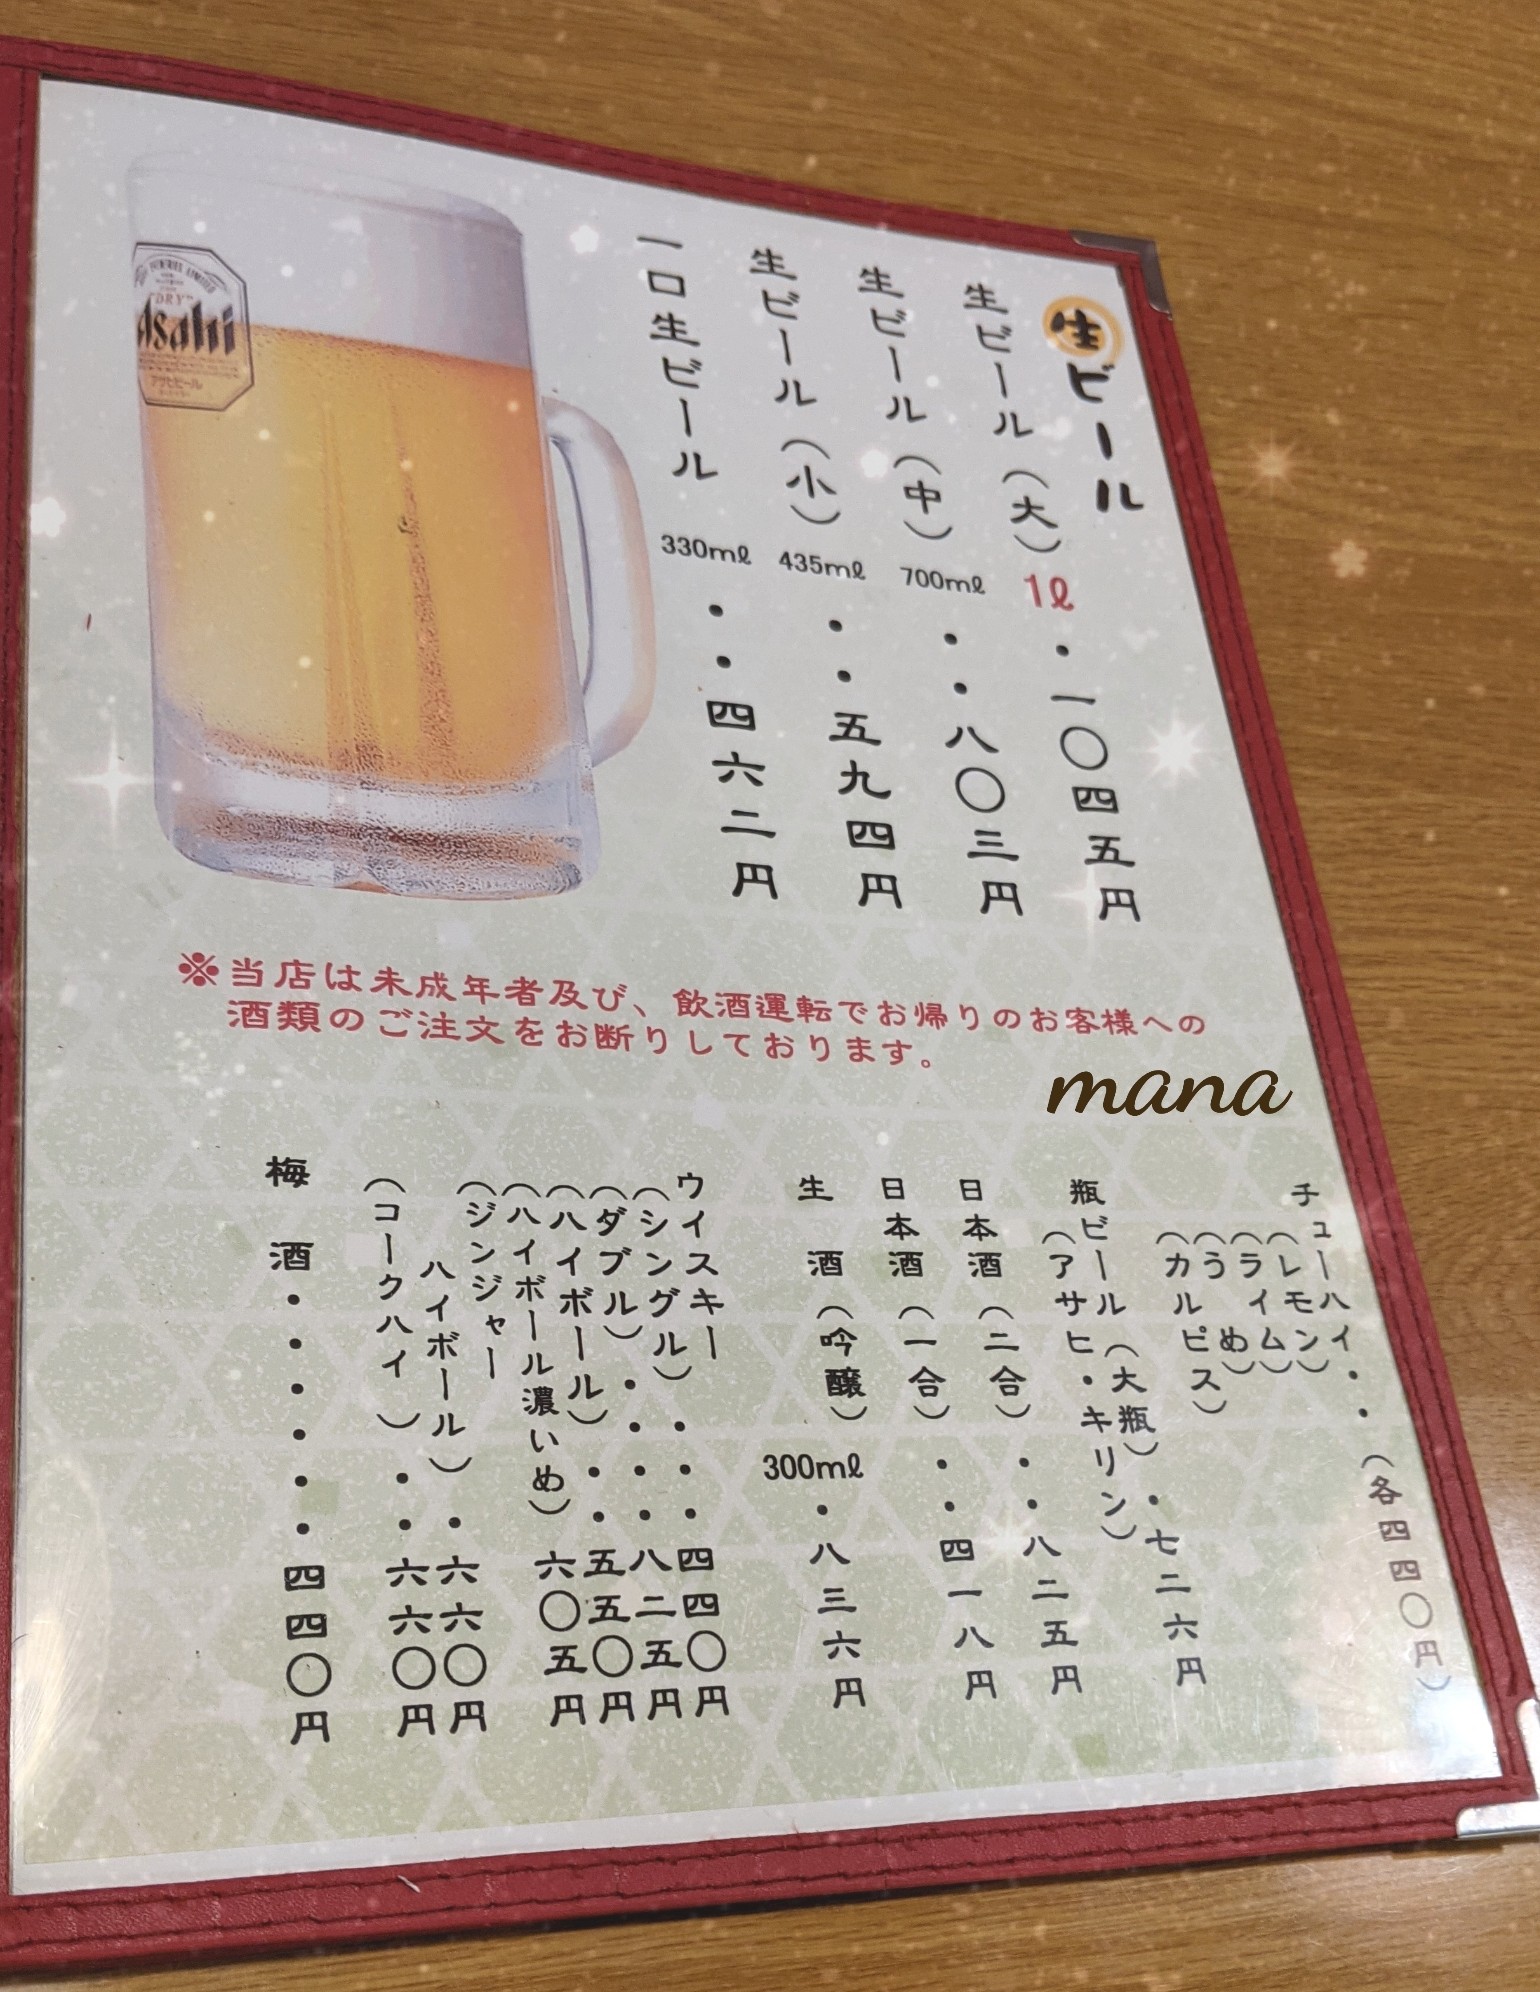 生ビール
生ビール（大） 1ℓ・一〇四五円
生ビール（中） 700mℓ・・八〇三円
生ビール（小） 435mℓ・・五九四円
一口生ビール 330mℓ・・四六二円
"DRY"
Asahi
アサヒビール
※当店は未成年者及び、飲酒運転でお帰りのお客様への
酒類のご注文をお断りしております。
mana
チューハイ・・（各四四〇円）
（レモン）
（ライム）
（うめ）
（カルピス）
瓶ビール（大瓶）・七二六円
（アサヒ・キリン）
日本酒（二合）・・八二五円
日本酒（一合）・・四一八円
生酒（吟醸） 300mℓ・八三六円
ウイスキー
（シングル）・・・四四〇円
（ダブル）・・・・八二五円
（ハイボール）・・五五〇円
（ハイボール濃いめ）六〇五円
（ジンジャー
ハイボール）・六六〇円
（コークハイ）・・六六〇円
梅酒・・・・・・四四〇円